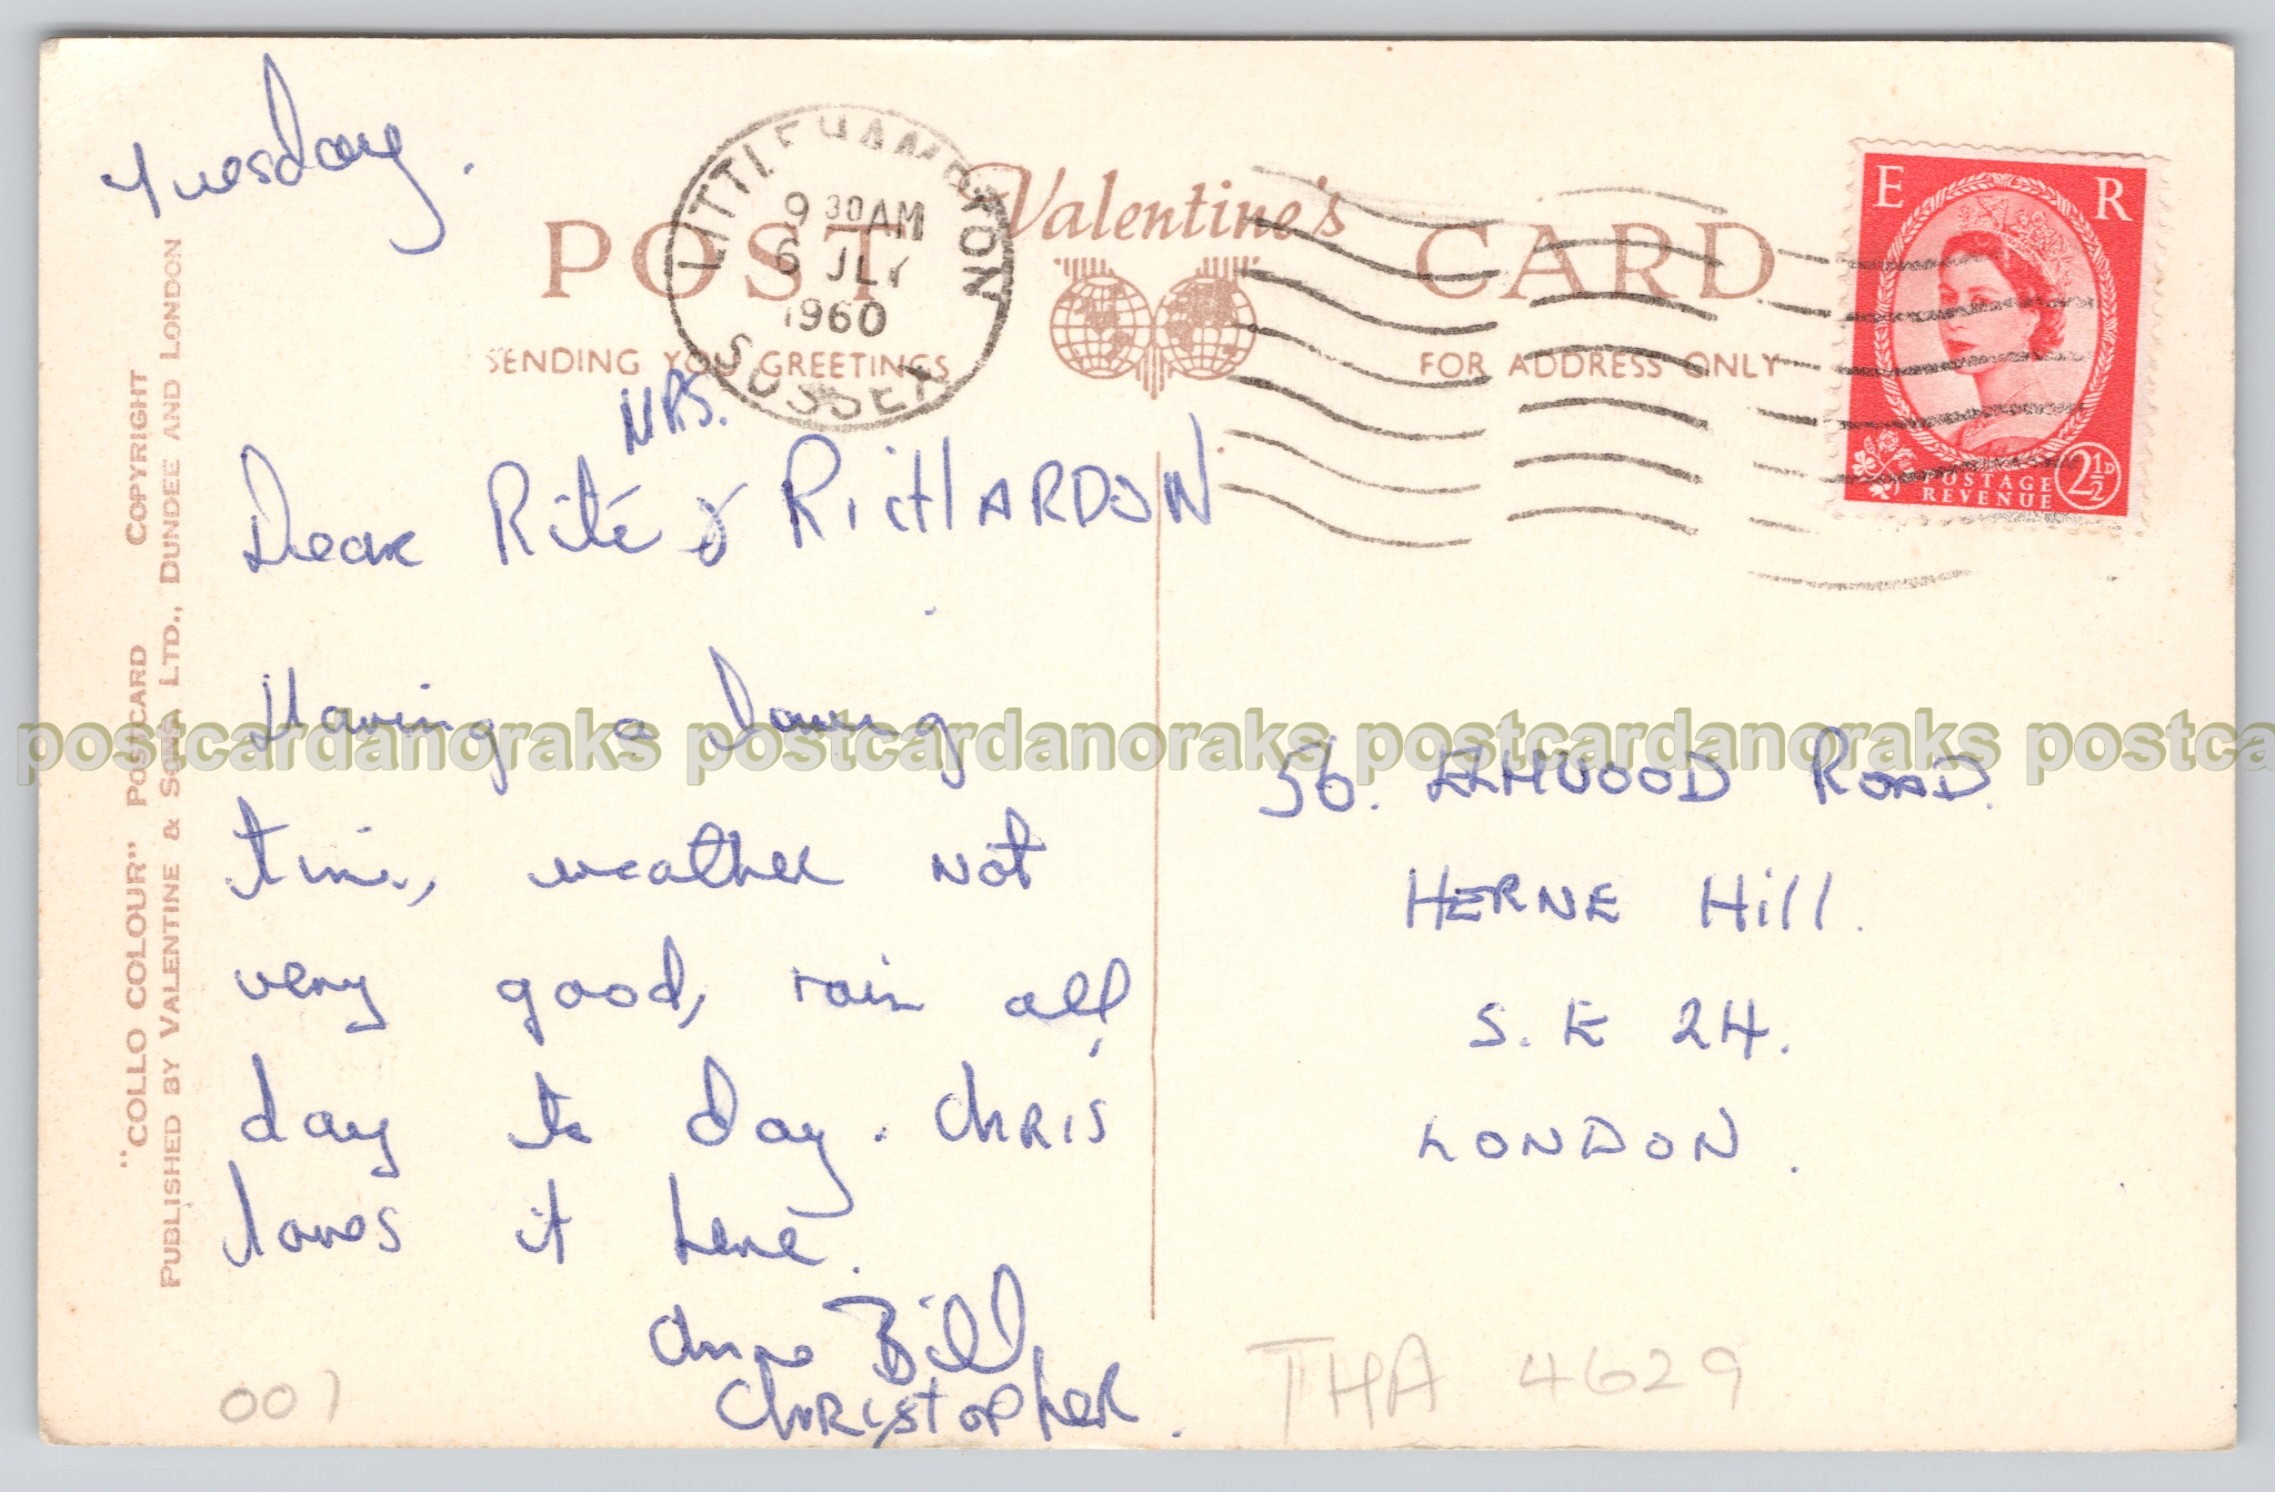 Tuesday.
LITTLEHAMPTON
9 30 AM
6 JLY
1960
SUSSEX
Valentine's
POST CARD
SENDING YOU GREETINGS
FOR ADDRESS ONLY
E R
POSTAGE
REVENUE
2½D
"COLLO COLOUR" POSTCARD COPYRIGHT
PUBLISHED BY VALENTINE & SONS LTD., DUNDEE AND LONDON
MRS.
Dear Rite & RICHARDSON
Having a loving
time, weather not
very good, rain all,
day to day. CHRIS
loves it here.
Anne Bill
CHRISTOPHER.
56. ELMWOOD ROAD.
HERNE Hill.
S. E 24.
LONDON.
001
THA 4629
postcardanoraks postcardanoraks postcardanoraks postca